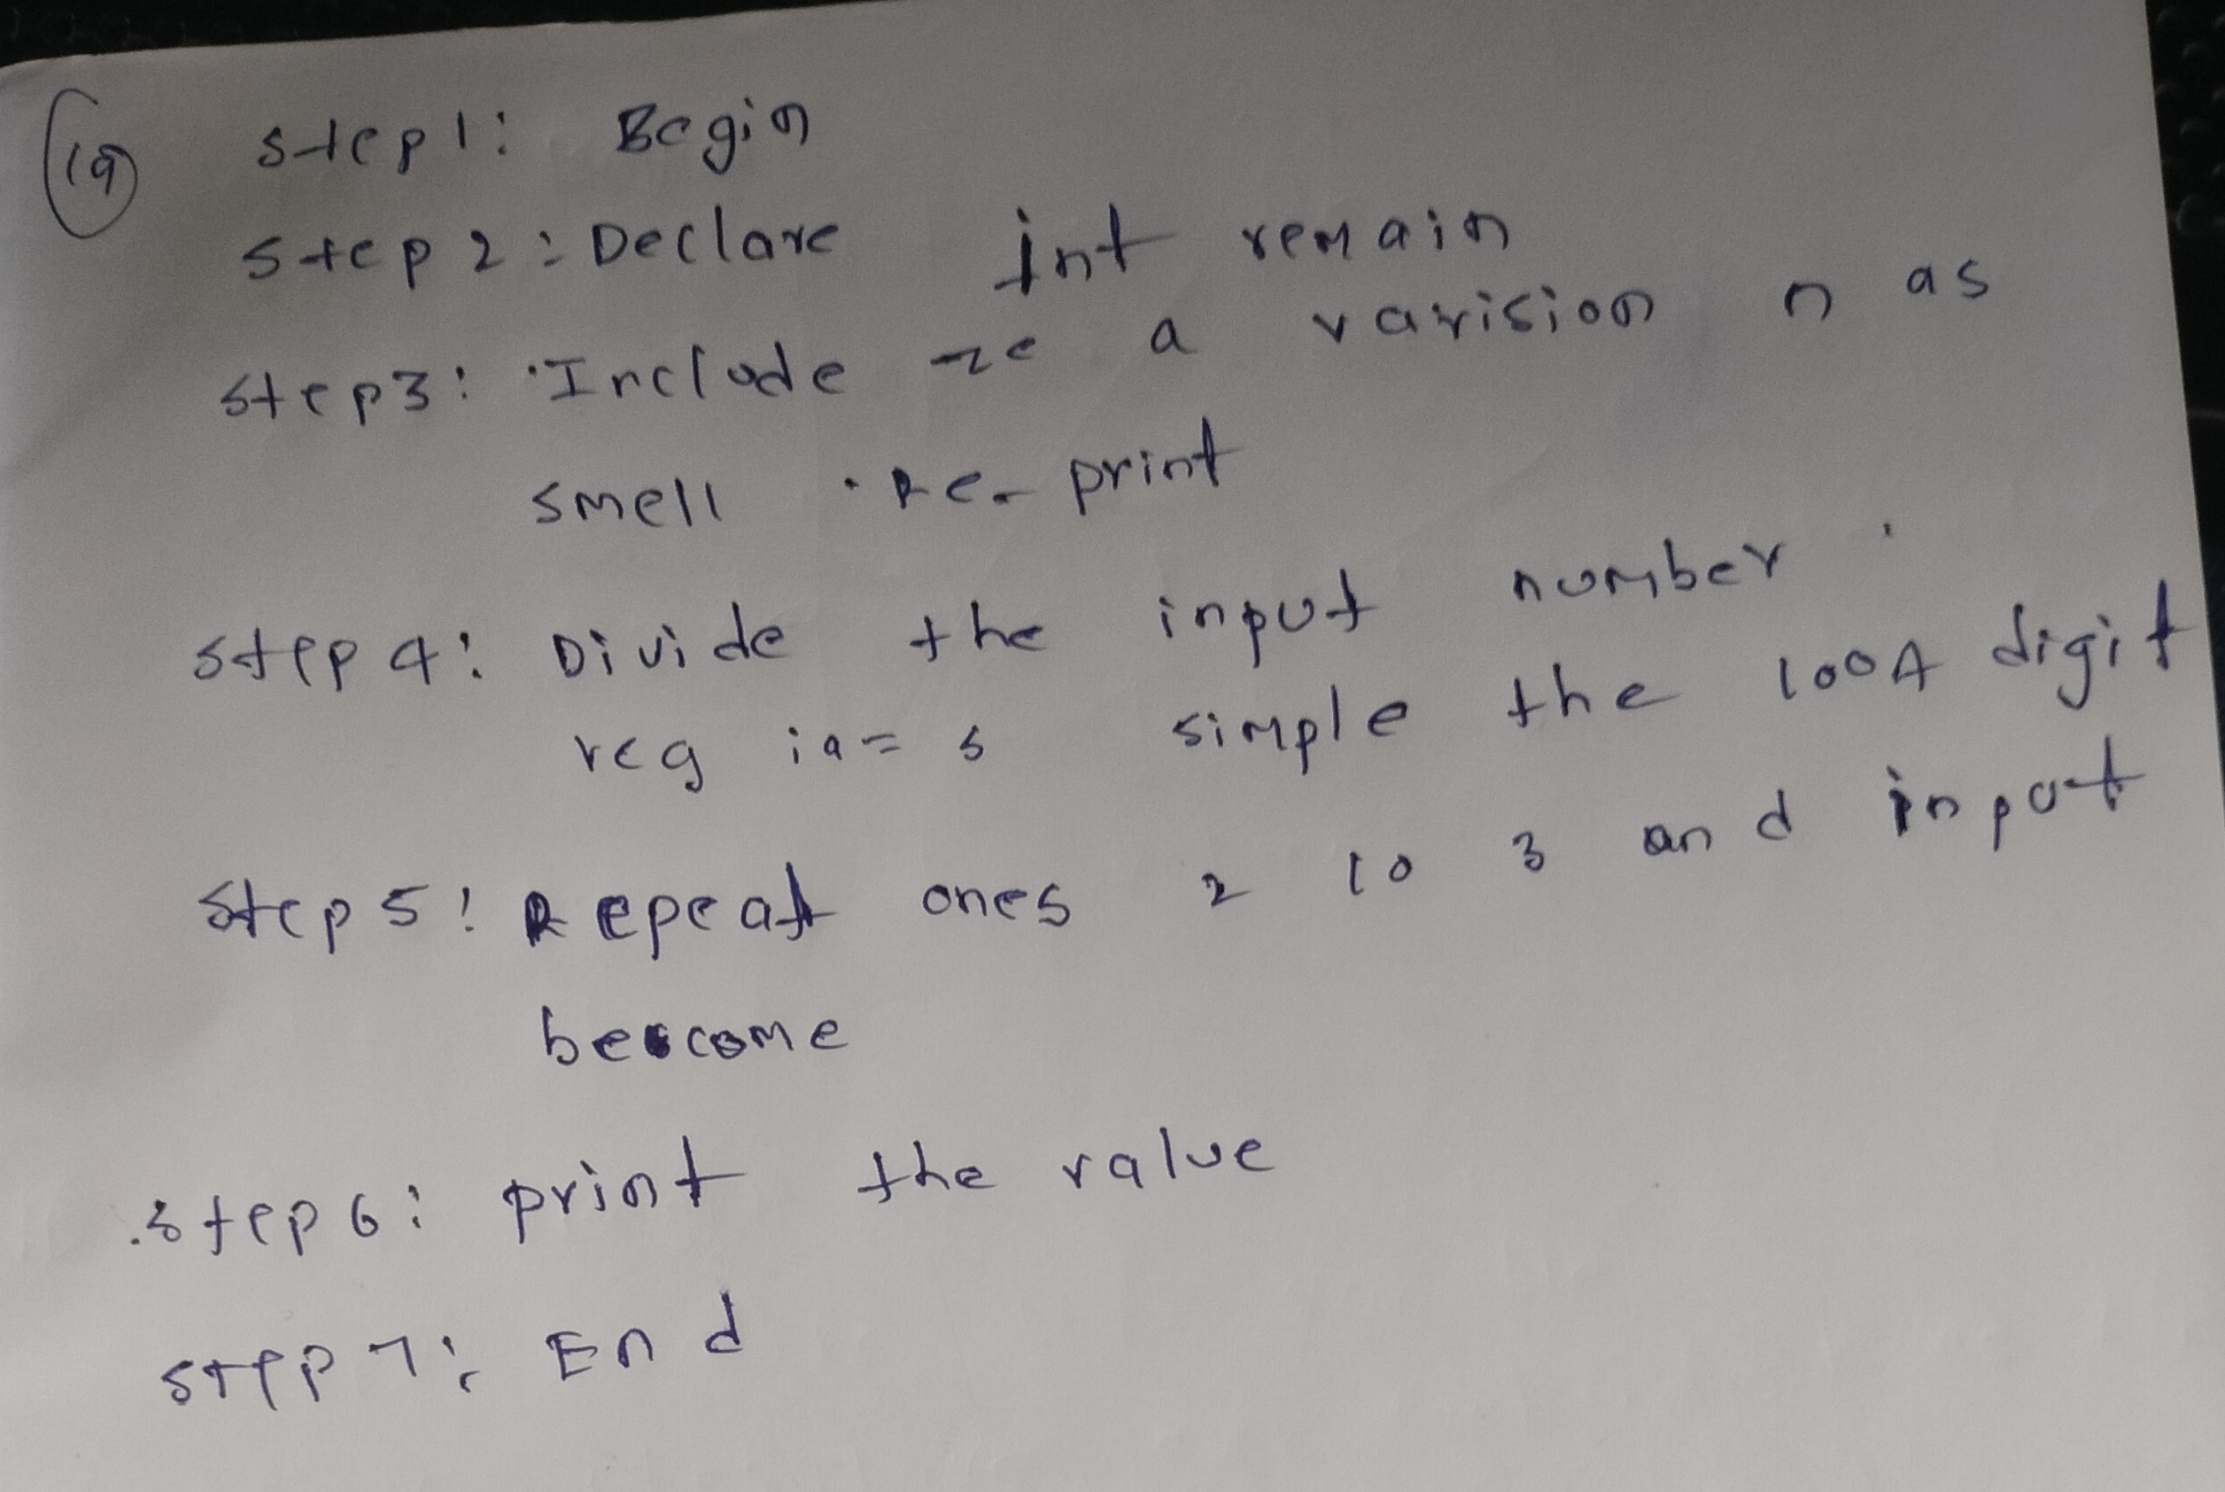 19 Step1: Begin
Step 2: Declare int remain
Step3: Include a varision n as
smell Re-print
Step 4: Divide the input number
reg simple the digit
Step 5: Repeat ones 2 to 3 and input
become
Step 6: print the value
Step 7: End